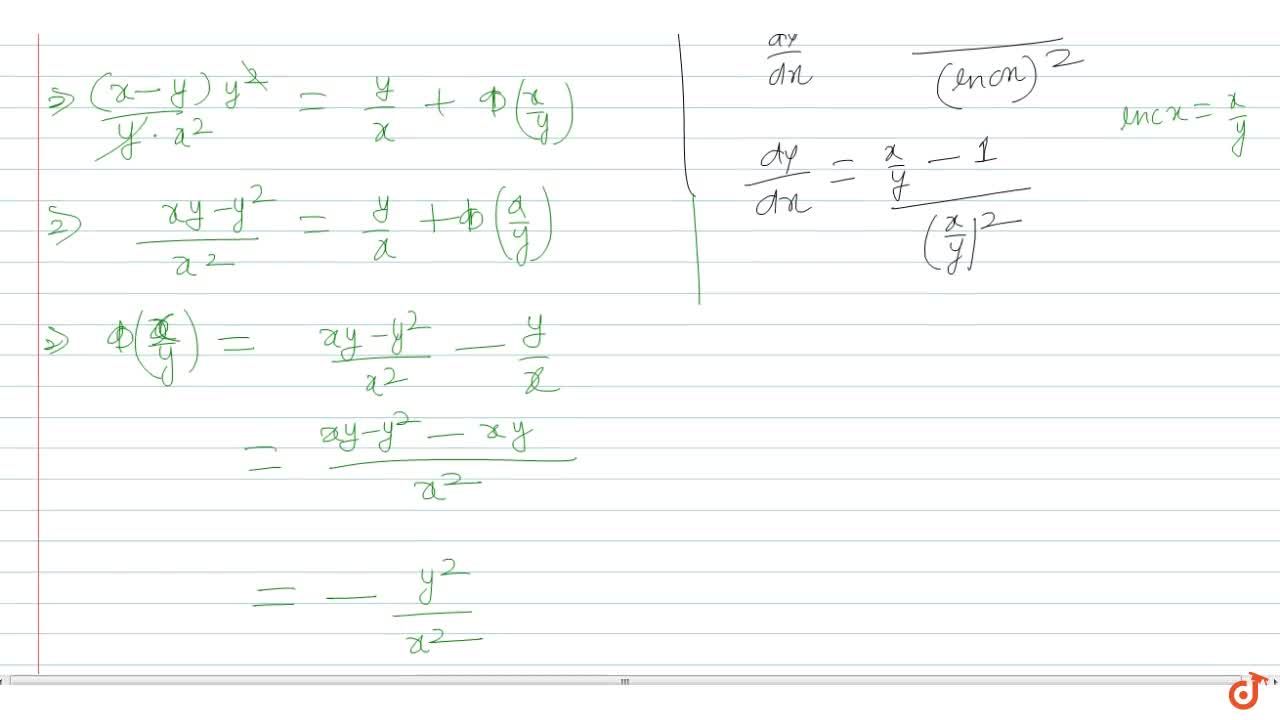 ⇒ (x-y) y² / y · x² = y/x + Φ(x/y)
⇒ xy-y² / x² = y/x + Φ(x/y)
⇒ Φ(x/y) = xy-y² / x² - y/x
= xy-y² - xy / x²
= - y² / x²
dy/dx / (lncx)²
lncx = x/y
dy/dx = x/y - 1 / (x/y)²